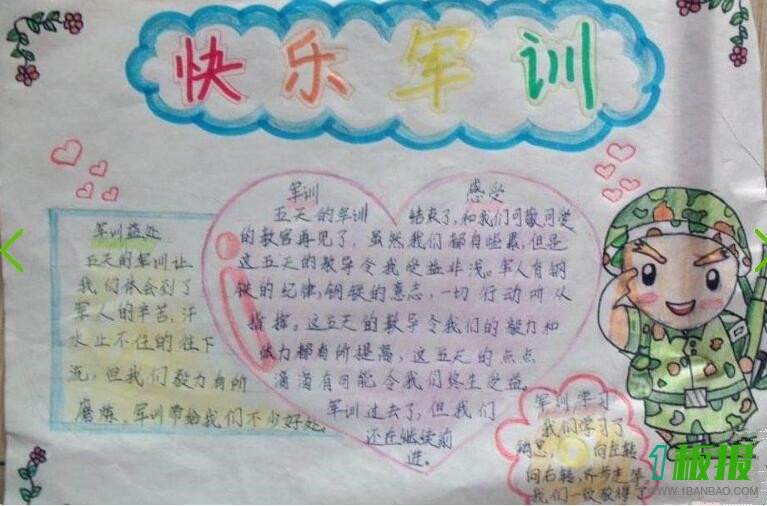 快乐军训
军训益处
五天的军训让
我们体会到了
军人的辛苦,汗
水止不住的往下
流,但我们毅力有所
磨炼。军训带给我们不少好处。
军训 感受
五天的军训 结束了,和我们可敬可爱
的教官再见了,虽然我们都有些累,但是
这五天的教导令我受益非浅。军人有钢
铁的纪律,钢铁的意志,一切行动听从
指挥。这五天的教导令我们的毅力和
体力都有所提高,这五天的点点
滴滴有可能令我们终生受益。
军训过去了,但我们
还在继续前
进。
军训学习
我们学习了
稍息, 向左转
向右转,齐步走等
我们一致获得了
1板报
WWW.1BANBAO.COM